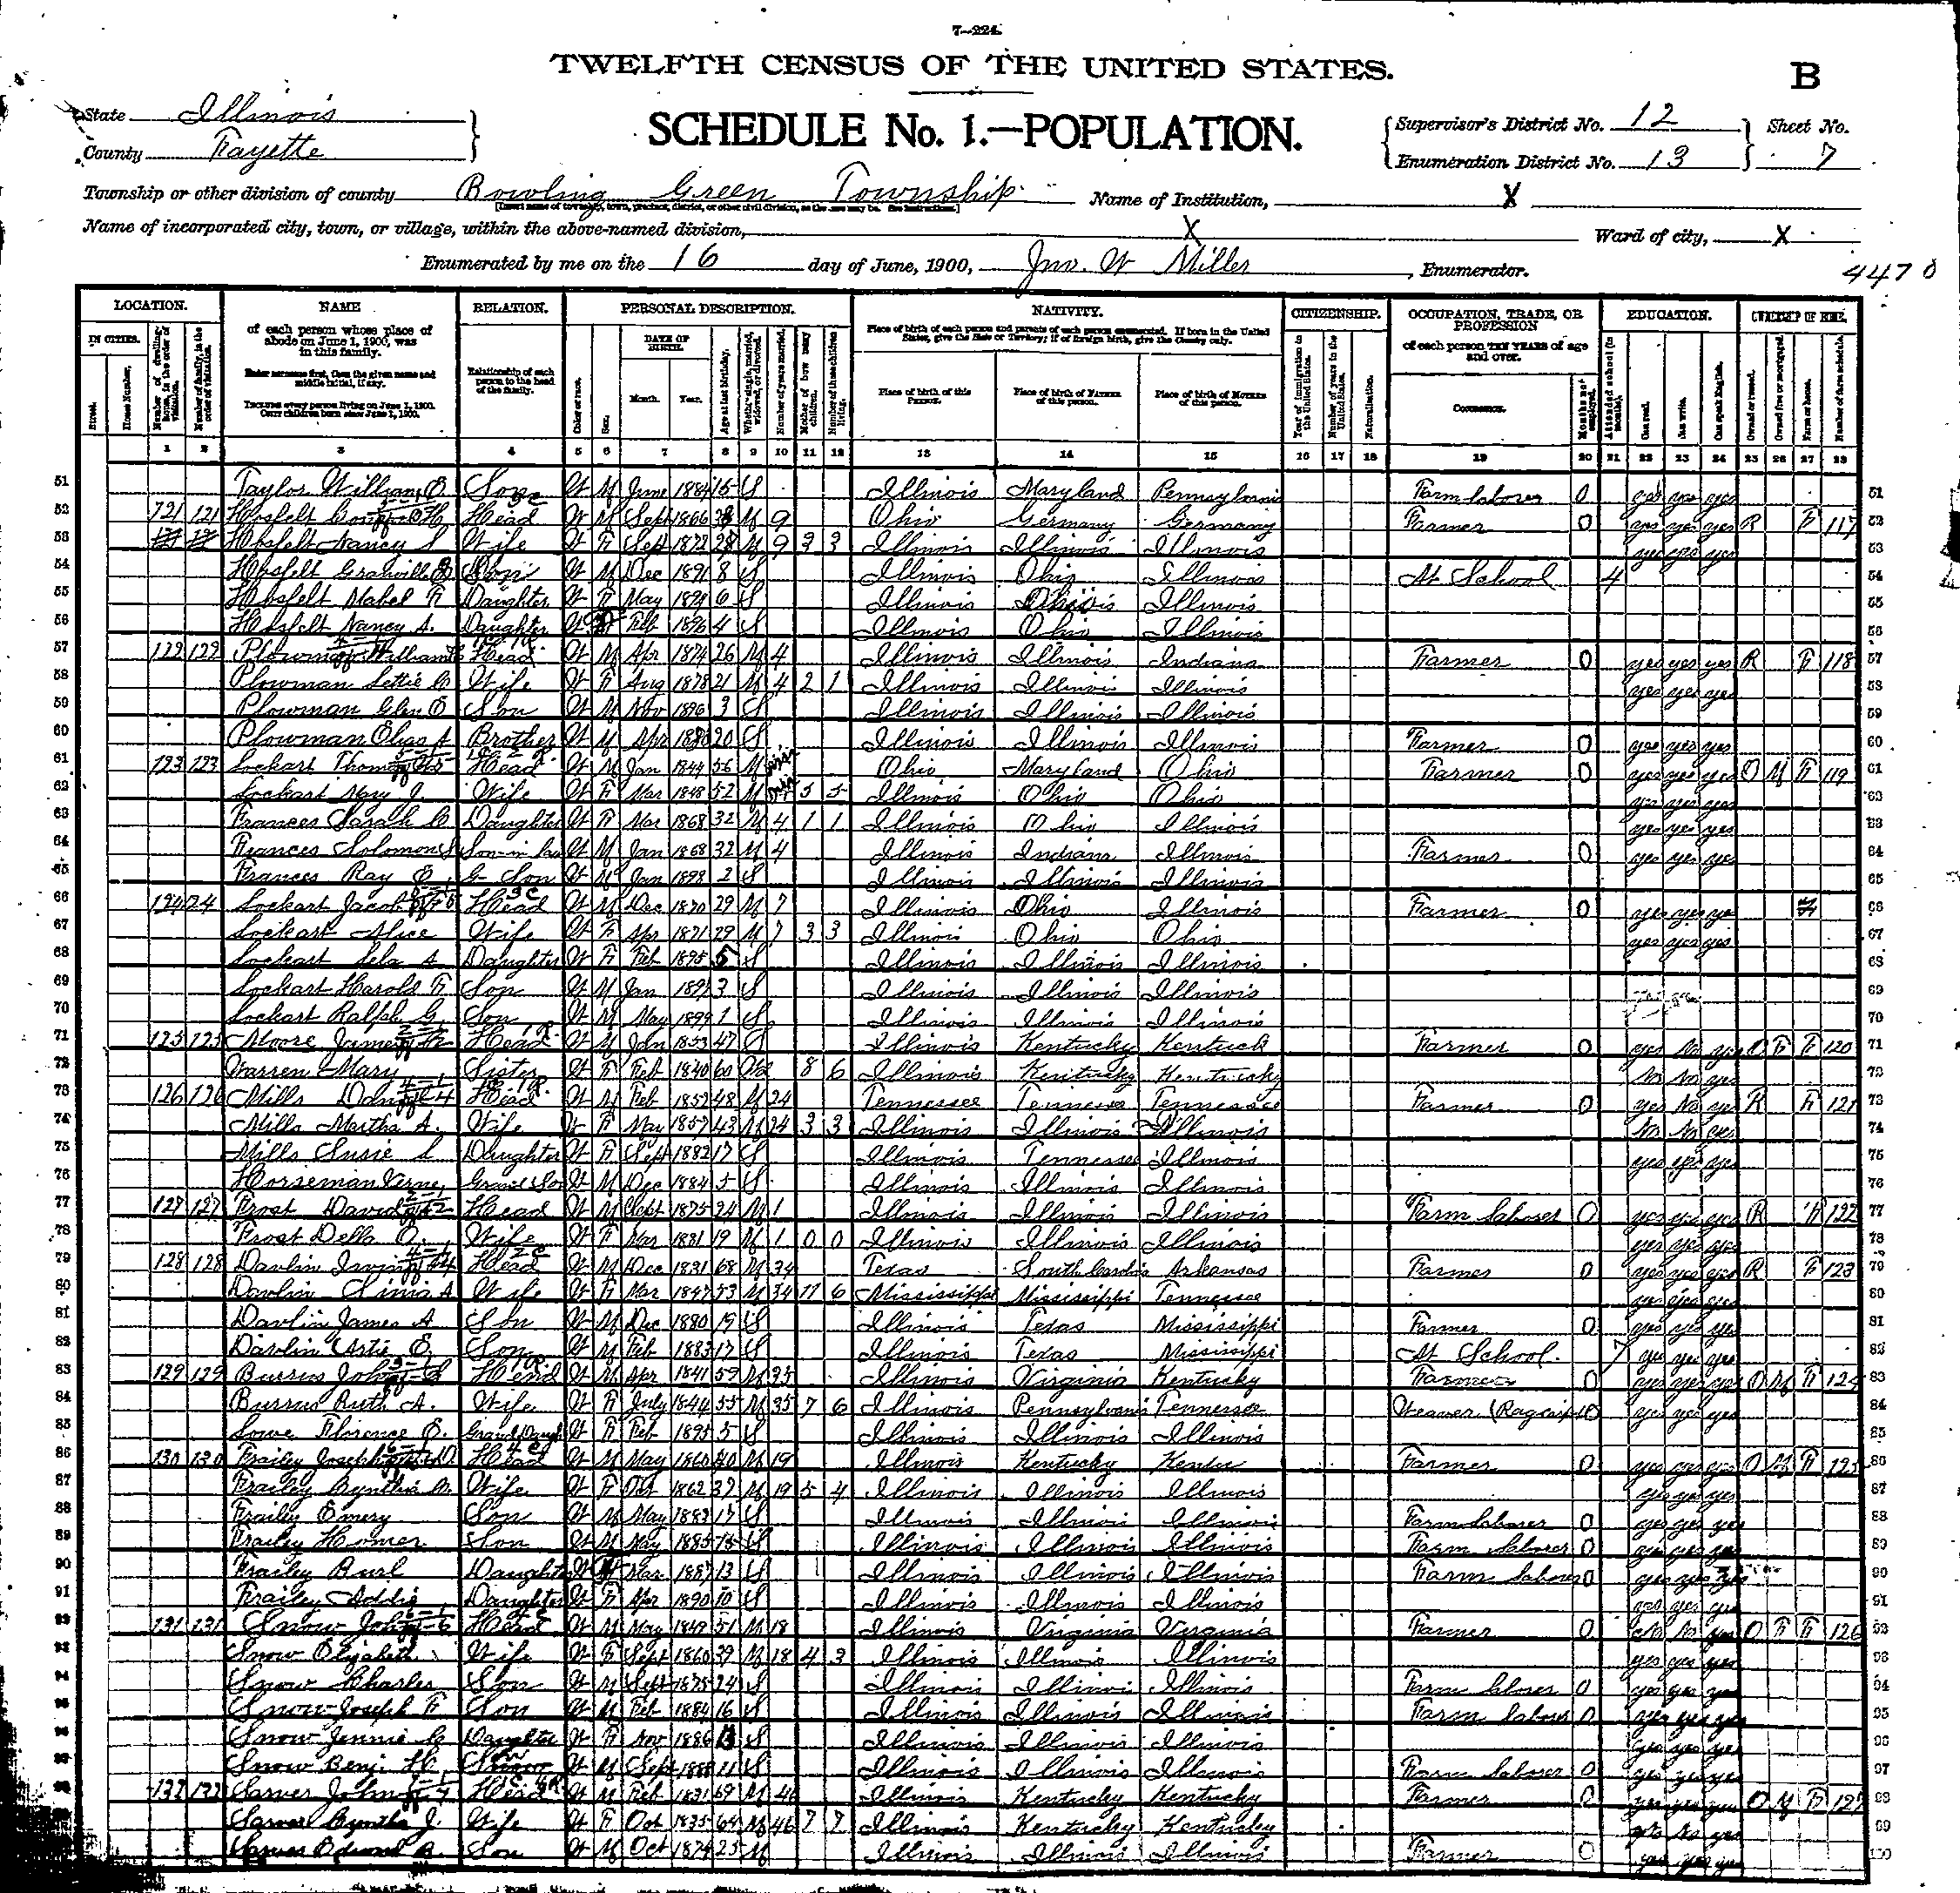 7—224.
TWELFTH CENSUS OF THE UNITED STATES.
B
State Illinois
County Fayette
SCHEDULE No. 1.—POPULATION.
Supervisor's District No. 12
Enumeration District No. 13
Sheet No. 7
Township or other division of county Bowling Green Township Name of Institution, X
Name of incorporated city, town, or village, within the above-named division, X Ward of city, X
Enumerated by me on the 16 day of June, 1900, Jno. W Miller, Enumerator.
4470
LOCATION. NAME RELATION. PERSONAL DESCRIPTION. NATIVITY. CITIZENSHIP. OCCUPATION, TRADE, OR PROFESSION EDUCATION. OWNERSHIP OF HOME.
IN CITIES. of each person whose place of abode on June 1, 1900, was in this family. Relationship of each person to the head of the family. DATE OF BIRTH. Place of birth of each person and parents of each person enumerated. If born in the United States, give the State or Territory; if of foreign birth, give the Country only. of each person TEN YEARS of age and over.
Month. Year. Place of birth of this PERSON. Place of birth of FATHER of this person. Place of birth of MOTHER of this person. OCCUPATION.
1 2 3 4 5 6 7 8 9 10 11 12 13 14 15 16 17 18 19 20 21 22 23 24 25 26 27 28
51 Taylor William E Son W M June 1884 15 S Illinois Maryland Pennsylvania Farm laborer 0 yes yes yes 51
52 121 121 Head W M Sept 1866 M 9 Ohio Germany Germany Farmer 0 yes yes yes R F 117 52
53 Nancy S Wife W F Sept 1872 M 9 3 3 Illinois Illinois Illinois yes yes yes 53
54 Granville Son W M Dec 1891 8 S Illinois Ohio Illinois At School 4 54
55 Mabel F Daughter W F May 1894 6 S Illinois Illinois 55
56 Nancy A. Daughter W Feb 1896 4 S Illinois Ohio Illinois 56
57 122 122 Plowman William Head W M Apr 1874 26 M 4 Illinois Illinois Indiana Farmer 0 yes yes yes R F 118 57
58 Plowman Lettie C Wife W F Aug 1878 21 M 4 2 1 Illinois Illinois Illinois yes yes yes 58
59 Plowman Glen E Son W M Nov 1896 3 S Illinois Illinois Illinois 59
60 Plowman Elias A Brother W M Apr 1880 20 S Illinois Illinois Illinois Farmer 0 yes yes yes 60
61 123 123 Lockart Thomas Head W M Jan 1844 56 M Ohio Maryland Ohio Farmer 0 yes yes yes O M F 119 61
62 Lockart Mary J. Wife W F Mar 1848 52 M 5 5 Illinois Ohio Ohio yes yes yes 62
63 Frances Sarah C Daughter W F Mar 1868 32 M 4 1 1 Illinois Ohio Illinois yes yes yes 63
64 Frances Solomon S Son-in law W M Jan 1868 32 M 4 Illinois Indiana Illinois Farmer 0 yes yes yes 64
65 Frances Ray E G-Son W M Jan 1898 2 S Illinois Illinois Illinois 65
66 124 124 Lockart Jacob Head W M Dec 1870 29 M 7 Illinois Ohio Illinois Farmer 0 yes yes yes 66
67 Lockart Alice Wife W F Apr 1871 29 M 7 3 3 Illinois Ohio Ohio yes yes yes 67
68 Lockart Lela A Daughter W F Feb 1895 5 S Illinois Illinois Illinois 68
69 Lockart Harold F. Son W M Jan 1897 3 S Illinois Illinois Illinois 69
70 Lockart Ralph G. Son W M May 1899 1 S Illinois Illinois Illinois 70
71 125 125 Moore James Head W M Jan 1853 47 S Illinois Kentucky Kentuck Farmer 0 yes No yes O F F 120 71
72 Warren Mary Sister W F Feb 1840 60 Wd 8 6 Illinois Kentucky Kentucky No No yes 72
73 126 126 Mills Head W M Feb 1852 48 M 24 Tennessee Tennessee Tennessee Farmer 0 yes No yes R F 121 73
74 Mills Martha A. Wife W F May 1857 43 M 24 3 3 Illinois Illinois Illinois No No yes 74
75 Mills Susie L Daughter W F Sept 1882 17 S Illinois Tennessee Illinois yes yes yes 75
76 Horseman Verne Grand Son W M Dec 1884 5 S Illinois Illinois Illinois 76
77 127 127 Frost David Head W M Sept 1875 24 M 1 Illinois Illinois Illinois Farm laborer 0 yes yes yes R H 122 77
78 Frost Della O. Wife W F Mar 1881 19 M 1 0 0 Illinois Illinois Illinois yes yes yes 78
79 128 128 Davlin Head W M Dec 1831 68 M 34 Texas South Carolina Arkansas Farmer 0 yes yes yes R F 123 79
80 Davlin A Wife W F Mar 1847 53 M 34 11 6 Mississippi Mississippi Tennessee yes yes yes 80
81 Davlin James A Son W M Dec 1880 19 S Illinois Texas Mississippi Farmer 0 yes yes yes 81
82 Davlin Artie E. Son W M Feb 1883 17 S Illinois Texas Mississippi At School. 7 yes yes yes 82
83 129 129 Burrus John Head W M Apr 1841 59 M 35 Illinois Virginia Kentucky Farmer 0 yes yes yes O M F 124 83
84 Burrus Ruth A. Wife W F July 1844 55 M 35 7 6 Illinois Pennsylvania Tennessee Weaver yes yes yes 84
85 Lowe Florence E. Grand Daugh W F Feb 1895 5 S Illinois Illinois Illinois 85
86 130 130 Frailey Joseph Head W M May 1860 40 M 19 Illinois Kentucky Farmer 0 yes yes yes O M F 125 86
87 Frailey Cynthia Wife W F Oct 1862 37 M 19 5 4 Illinois Illinois Illinois yes yes yes 87
88 Frailey Emery Son W M May 1883 17 S Illinois Illinois Illinois Farm laborer 0 yes yes yes 88
89 Frailey Homer Son W M May 1885 15 S Illinois Illinois Illinois Farm laborer 0 yes yes yes 89
90 Frailey Burl Daughter W Mar 1887 13 S Illinois Illinois Illinois Farm laborer 0 yes yes yes 90
91 Frailey Addie Daughter W F Apr 1890 10 S Illinois Illinois Illinois yes yes yes 91
92 131 131 Snow John Head W M May 1849 51 M 18 Illinois Virginia Virginia Farmer 0 No No yes O F F 126 92
93 Snow Elizabeth Wife W F Sept 1860 39 M 18 4 3 Illinois Illinois Illinois yes yes yes 93
94 Snow Charles Son W M Sept 1875 24 S Illinois Illinois Illinois Farm laborer 0 yes yes yes 94
95 Snow Joseph F Son W M Feb 1884 16 S Illinois Illinois Illinois Farm laborer 0 yes yes yes 95
96 Snow Jennie C Daughter W F Nov 1886 13 S Illinois Illinois Illinois yes yes yes 96
97 Snow Benj. H. Son W M Sept 1888 11 S Illinois Illinois Illinois Farm laborer 0 yes yes yes 97
98 132 132 Sarver John Head W M Feb 1831 69 M 46 Illinois Kentucky Kentucky Farmer 0 yes yes yes O M F 127 98
99 Sarver Cynthia J. Wife W F Oct 1835 64 M 46 7 7 Illinois Kentucky Kentucky No yes 99
100 Sarver Edward Son W M Oct 1874 25 M Illinois Illinois Illinois Farmer 0 yes yes yes 100